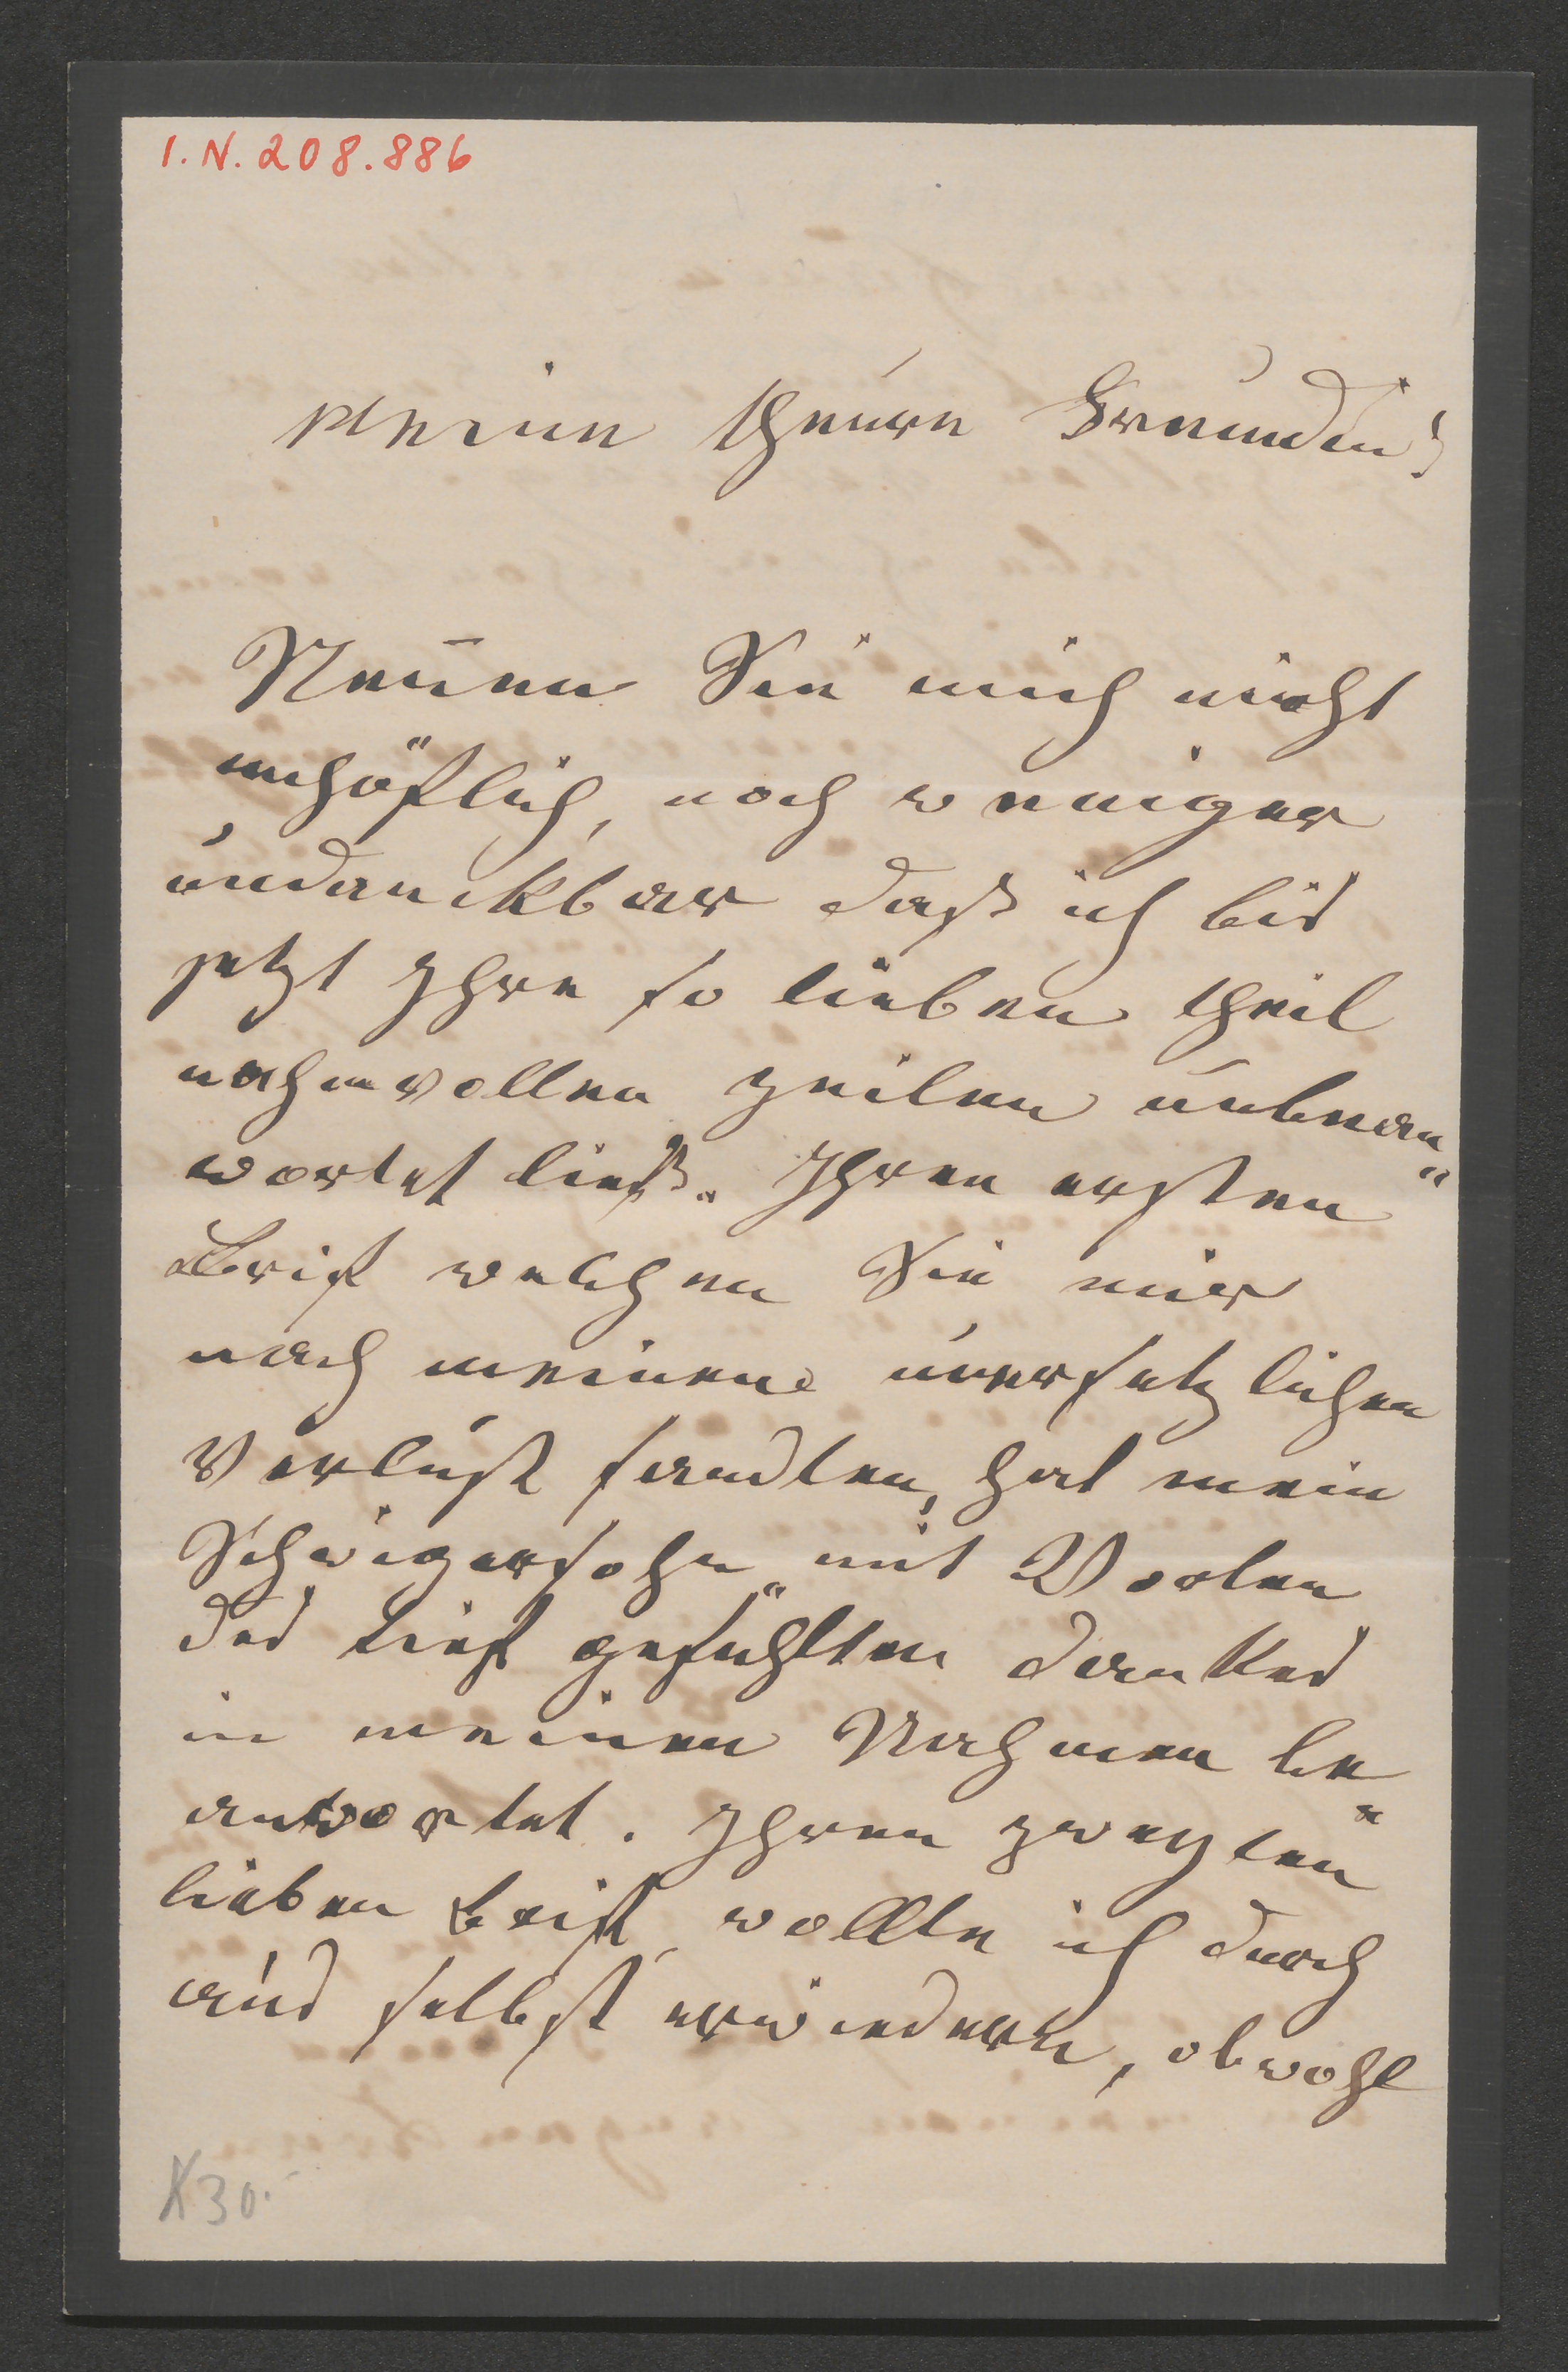 I.N. 208.886
Meine theure Freundin!
Nen̄en Sie mich nicht
unhöflich, noch weniger
undanckbar daß ich bis
jetzt Ihre so lieben theil
nahmvollen Zeilen unbean„
wortet ließ. Ihren ersten
Brif welchen Sie mir
nach meinen unersetzlichen
Verlust sandten, hat mein
Schwigersohn mit Worten
des tief gefühlten Dankes
in meinen Nahmen be„
antwortet. Ihren zweyten
lieben Brif, wollte ich durch
aus selbst erwiedern, obwohl
K 30.-